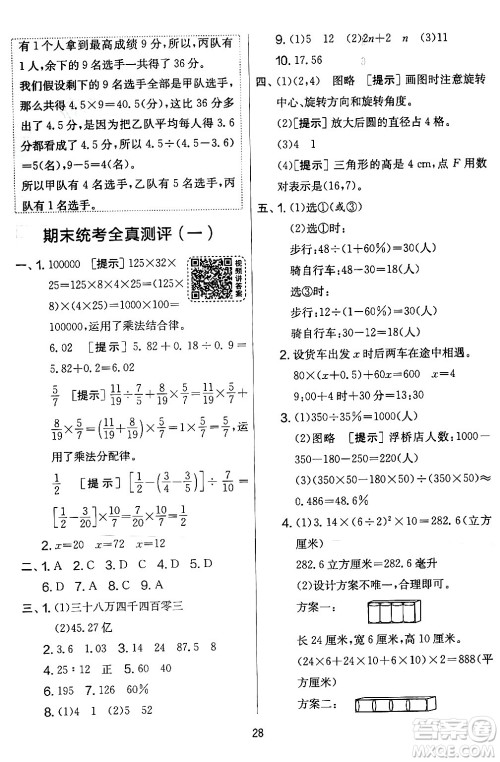 有 1 个人拿到最高成绩 9 分，所以，丙队有
1 人，余下的 9 名选手一共得了 36 分。
我们假设剩下的 9 名选手全是甲队选手，
那么共得 4.5×9＝40.5(分)，这时每 3.6
分都看成了 4.5 分，40.5－36＝4.5(分)，
所以，乙队有选手 4.5÷(4.5－3.6)
＝5(名)，9－5＝4(名)。
所以甲队有 4 名选手，乙队有 5 名选手，
丙队有 1 名选手。
期末统考全真测评（一）
一、1. 100000 [提示] 125×32×
25＝125×(8×4)×25＝(125×
8)×(4×25)＝1000×100＝
100000，运用了乘法结合律。
视频讲答案
6.02 [提示] 5.82＋0.18÷0.9＝
5.82＋0.2＝6.02
5/7 [提示] 11/19÷7/5＋8/19×5/7＝11/19×5/7
＋8/19×5/7＝(11/19＋8/19)×5/7＝1×5/7，运
用了乘法分配律。
1/2 [提示] [1/2－(3/4－3/5)]÷7/10＝
[1/2－3/20]×10/7＝7/20×10/7＝1/2
2. x＝20 x＝72 x＝12
二、1. D 2. A 3. C 4. D 5. C
三、1. (1)三十八万四千四百零三
(2)45.27 亿
2. 3.6 15 240 3. 9 7.5 8
4. 25∶2 24
5. 195 6. 120 7. 60%
8. (1)4 1 (2)5 52
9. (1)15 (2)2n＋2 n (3)11
10. 17.56
四、(1)(2,4) 图略 [提示] 画图时注意旋转
中心、旋转方向和旋转角度。
(2)[提示] 放大后圆的直径占 4 格。
(3)4 1
(4)[提示] 三角形的高是 4 cm，点 F 用数
对表示为(16,7)。
五、1. (1)选①（或③）
(2)选①时：
步行：48÷1.6＝30(人)
骑自行车：48－30＝18(人)
选③时：
步行：12÷40%＝30(人)
骑自行车：30－12＝18(人)
2. 设货车出发 x 时后两车在途中相遇。
80×(x＋0.5)＋60x＝600 x＝4
9:00＋4 时＋30 分＝13:30
3. (1)350÷35%＝1000(人)
(2)图略 [提示] 浮桥店人数：
1000－350－180－150－270＝50(人)
(3)(350×50＋180×150＋150×50)÷
0.486＝48.6(元)
4. (1)3.14×(6÷2)²×10＝282.6(立方
厘米)
282.6 立方厘米＝282.6 毫升
(2)设计方案不唯一，包装尽可能少。
方案一：
长 24 厘米，宽 6 厘米，高 10 厘米。
(24×6＋24×10＋6×10)×2＝888(平
方厘米)
方案二：
28
作业帮答案